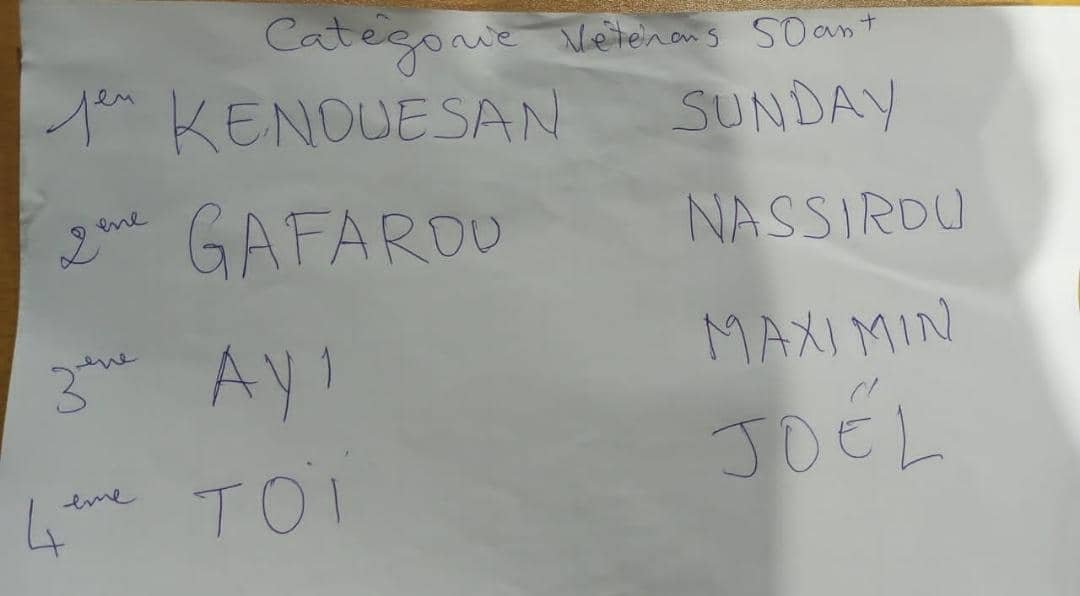 Catégorie Vétérans 50 ant
1er KENOUESAN SUNDAY
2ème GAFAROU NASSIROU
3ème AYI MAXIMIN
4ème TOÏ JOËL